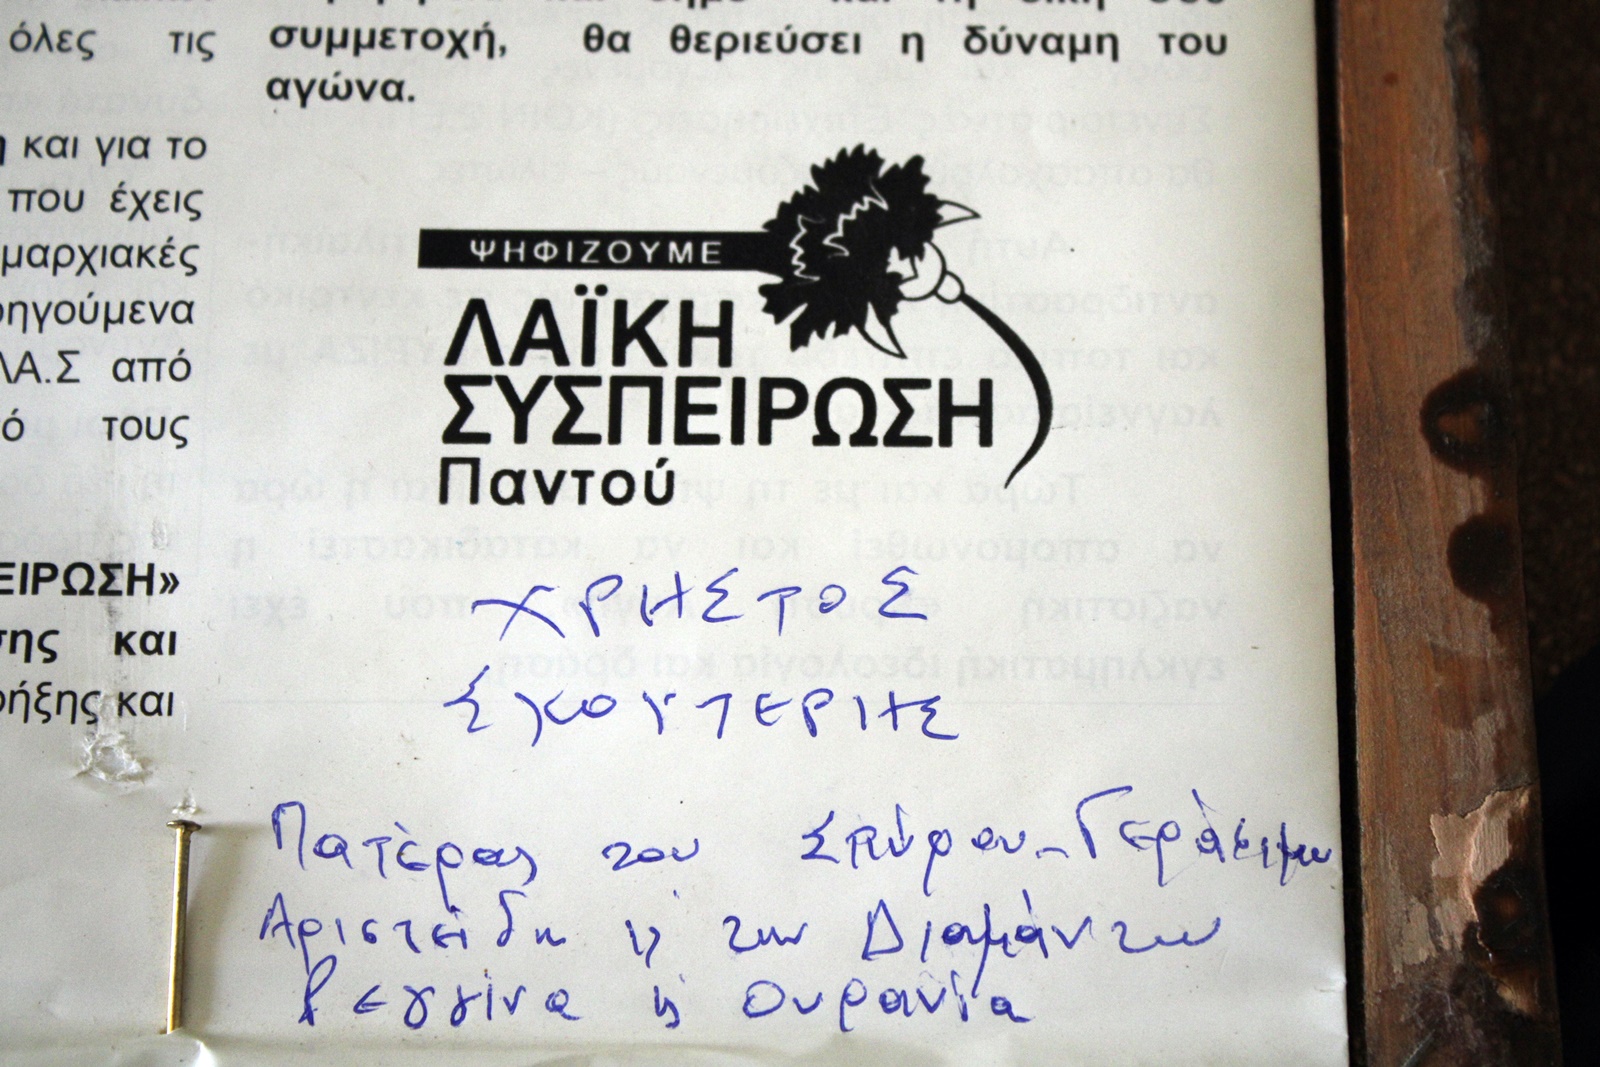 όλες τις
και για το
που έχεις
μαρχιακές
ηγούμενα
ΛΑ.Σ από
ό τους
ΕΙΡΩΣΗ»
της και
ρήξης και
συμμετοχή, θα θεριεύσει η δύναμη του
αγώνα.
ΨΗΦΙΖΟΥΜΕ
ΛΑΪΚΗ
ΣΥΣΠΕΙΡΩΣΗ
Παντού
ΧΡΗΣΤΟΣ
ΣΚΟΥΤΕΡΗΣ
Πατέρας του Σπύρου - Γεράσιμου
Αριστείδη ή των Διαμάντων
Ρεγγίνα ή Ουρανία